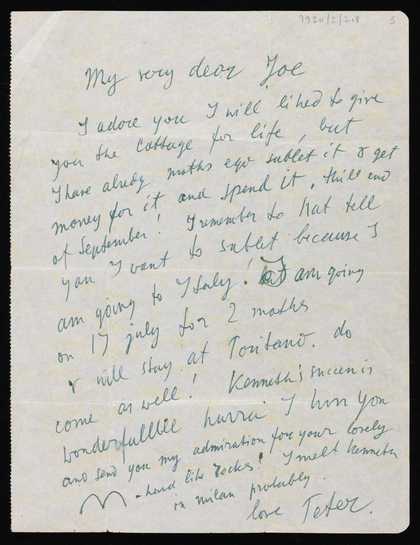 7920/2/2.8 5
My very dear Joe
I adore you I will liked to give
you the cottage for life, but
I have alredy moths ego sublet it & get
money for it and spend it, thill end
of September! I remember to that tell
you I want to sublet because I
am going to Italy! I am going
on 17 july for 2 moths
& will stay at Positano. do
come as well! Kenneth's succen is
wonderfulllll hurra I
and send you my admiration for your lovely
hand like
in milan probably.
love Peter.